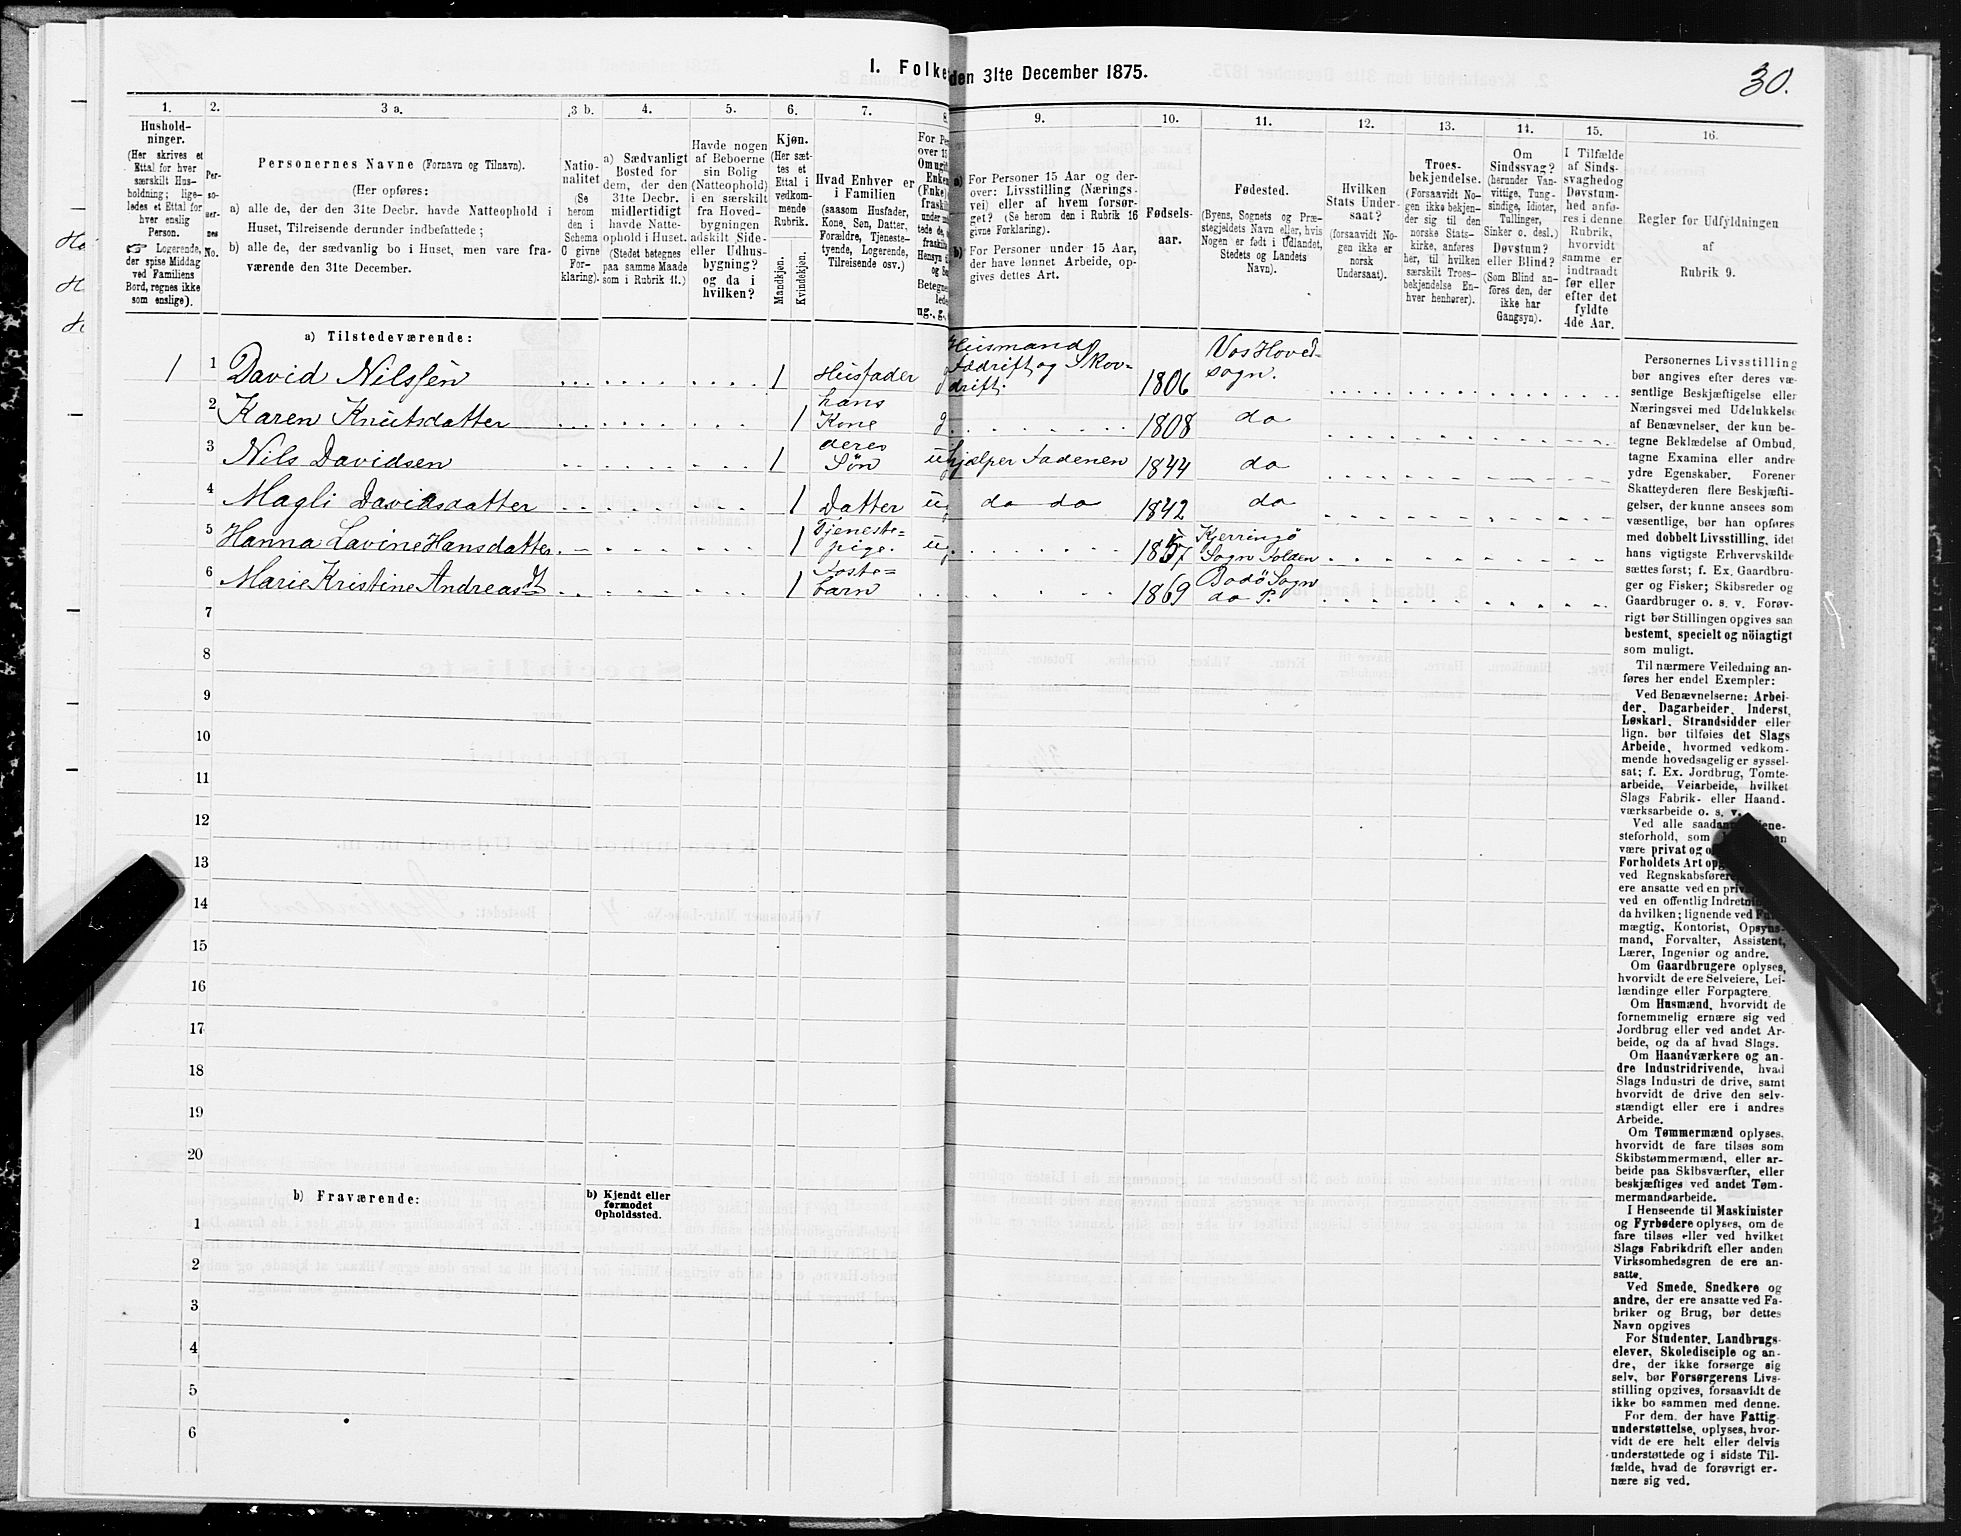 I. Folke den 31te December 1875.
30.
1.
2.
3 a.
3 b.
4.
5.
6.
7.
8.
9.
10.
11.
12.
13.
14.
15.
16.
Hushold-
ninger.
(Her skrives et
Ettal for hver
særskilt Hus-
holdning; lige-
ledes et Ettal for
hver enslig
Person.
☞ Logerende,
der spise Middag
ved Familiens
Bord, regnes ikke
som enslige).
Per-
so-
ner-
nes
No.
Personernes Navne (Fornavn og Tilnavn).
(Her opføres:
a) alle de, der den 31te Decbr. havde Natteophold i
Huset, Tilreisende derunder indbefattede;
b) alle de, der sædvanlig bo i Huset, men vare fra-
værende den 31te December.
Natio-
nalitet
(Se
herom
den i
Schema
G givne
For-
klaring).
a) Sædvanligt
Bosted for
dem, der den
31te Decbr.
midlertidigt
havde Natte-
ophold i Huset.
(Stedet betegnes
paa samme Maade
som i Rubrik 11.)
Havde nogen
af Beboerne
sin Bolig
(Natteophold)
i en særskilt
fra Hoved-
bygningen
adskilt Side-
eller Udhus-
bygning?
og da i
hvilken?
Kjøn.
(Her sæt-
tes et
Ettal i
vedkom-
mende
Rubrik.
Mandkjøn.
Kvindekjøn.
Hvad Enhver er
i Familien
(saasom Husfader,
Kone, Søn, Datter,
Forældre, Tjeneste-
tyende, Logerende,
Tilreisende osv.)
For Pe
over 15
Omugift
Enken
(Enke)
fraskilt
under
tede
fraskilte
Hensyn
og Se
Betegnes
lede
ug., g.,
a) For Personer 15 Aar og der-
over: Livsstilling (Nærings-
vei) eller af hvem forsør-
get? (Se herom den i Rubrik 16
givne Forklaring).
b) For Personer under 15 Aar,
der have lønnet Arbeide, op-
gives dettes Art.
Fødsels-
aar.
Fødested.
(Byens, Sognets og Præ-
stegjeldets Navn eller, hvis
Nogen er født i Udlandet,
Stedets og Landets
Navn).
Hvilken
Stats Under-
saat?
(forsaavidt No-
gen ikke er
norsk
Undersaat).
Troes-
bekjendelse.
(Forsaavidt No-
gen ikke bekjen-
der sig til den
norske Stats-
kirke, anføres
her, til hvilken
særskilt Troes-
bekjendelse En-
hver henhører).
Om
Sindssvag?
(herunder Van-
vittige, Tung-
sindige, Idioter,
Tullinger,
Sinker o. desl.)
Døvstum?
eller Blind?
(Som Blind an-
føres den, der
ikke har
Gangsyn).
I Tilfælde
af Sinds-
svaghed og
Døvstum-
hed anfø-
res i denne
Rubrik,
hvorvidt
samme er
indtraadt
før eller
efter det
fyldte
4de Aar.
Regler for Udfyldningen
af
Rubrik 9.
a) Tilstedeværende:
1 1 David Nilssen 1 Husfader g Husmand Jodrift og Skov-drift. 1806 Vos Hoved-sogn.
2 Karen Knutsdatter 1 hans Kone g 1808 do
3 Nils Davidsen 1 deres Søn ug hjælper Faderen 1844 do
4 Magli Davidsdatter 1 Datter ug do do 1842 do
5 Hanna Lavine Hansdatter 1 Tjeneste-pige. ug 1857 Kjerringö Sogn Folden
6 Marie Kristine Andreasd 1 Foste-barn 1869 Bodö Sogn do P.
7
8
9
10
11
12
13
14
15
16
17
18
19
20
b) Fraværende:
b) Kjendt eller
formodet
Opholdssted.
1
2
3
4
5
6
Personernes Livsstilling
bør angives efter deres væ-
sentlige Beskjæftigelse eller
Næringsvei med Udelukkelse
af Benævnelser, der kun be-
tegne Beklædelse af Ombud,
tagne Examina eller andre
ydre Egenskaber. Forener
Skatteyderen flere Beskjæfti-
gelser, der kunne ansees som
væsentlige, bør han opføres
med dobbelt Livsstilling, idet
hans vigtigste Erhvervskilde
sættes først; f. Ex. Gaardbru-
ger og Fisker; Skibsreder og
Gaardbruger o. s. v. Forøv-
rigt bør Stillingen opgives saa
bestemt, specielt og nöiagtigt
som muligt.
Til nærmere Veiledning an-
føres her endel Exempler:
Ved Benævnelserne: Arbei-
der, Dagarbeider, Inderst,
Løskarl, Strandsidder eller
lign. bør tilføies det Slags
Arbeide, hvormed vedkom-
mende hovedsagelig er syssel-
sat; f. Ex. Jordbrug, Tomte-
arbeide, Veiarbeide, hvilket
Slags Fabrik- eller Haand-
værksarbeide o. s. v.
Ved alle saadan jene-
steforhold, som
være privat og o
Forholdets Art opg
ved Regnskabsfører
ere ansatte ved en priv
ved en offentlig Indretni
da hvilken; lignende ved Fu
mægtig, Kontorist, Opsyns-
mand, Forvalter, Assistent,
Lærer, Ingeniør og andre.
Om Gaardbrugere oplyses,
hvorvidt de ere Selveiere, Lei-
lændinge eller Forpagtere.
Om Husmænd, hvorvidt de
fornemmelig ernære sig ved
Jordbrug eller ved andet Ar-
beide, og da af hvad Slags.
Om Haandværkere og an-
dre Industridrivende, hvad
Slags Industri de drive, samt
hvorvidt de drive den selv-
stændigt eller ere i andres
Arbeide.
Om Tømmermænd oplyses,
hvorvidt de fare tilsøs som
Skibstømmermænd, eller ar-
beide paa Skibsværfter, eller
beskjæftiges ved andet Tøm-
mermandsarbeide.
I Henseende til Maskinister
og Fyrbødere oplyses, om de
fare tilsøs eller ved hvilket
Slags Fabrikdrift eller anden
Virksomhedsgren de ere an-
satte.
Ved Smede, Snedkere og
andre, der ere ansatte ved Fa-
briker og Brug, bør dettes
Navn opgives
For Studenter, Landbrugs-
elever, Skoledisciple og an-
dre, der ikke forsørge sig
selv, bør Forsørgerens Livs-
stilling opgives, forsaavidt de
ikke bo sammen med denne.
For dem, der have Fattig-
understøttelse, oplyses, hvor-
vidt de ere helt eller delvis
understøttede og i sidste Til-
fælde, hvad de forøvrigt er-
nære sig ved.